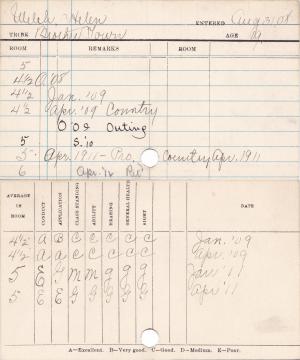 Welch, Helen ENTERED Aug 31, '08
TRIBE Brothertown AGE 19
ROOM REMARKS ROOM
5
4½ O. '08
4½ Jan. '09
4½ Apr. '09 Country
Outing
5 S. '10
5 Apr. 1911 - Pro. Country Apr. 1911
6 Apr. '12
AVERAGE IN ROOM CONDUCT APPLICATION CLASS STANDING ABILITY READING GENERAL HEALTH SIGHT DATE
4½ A B C C C C C Jan. '09
4½ A A C C C C C Apr. '09
5 E G M M G G G Jan '11
5 E E G G G G G Apr '11
A—Excellent. B—Very good. C—Good. D—Medium. E—Poor.